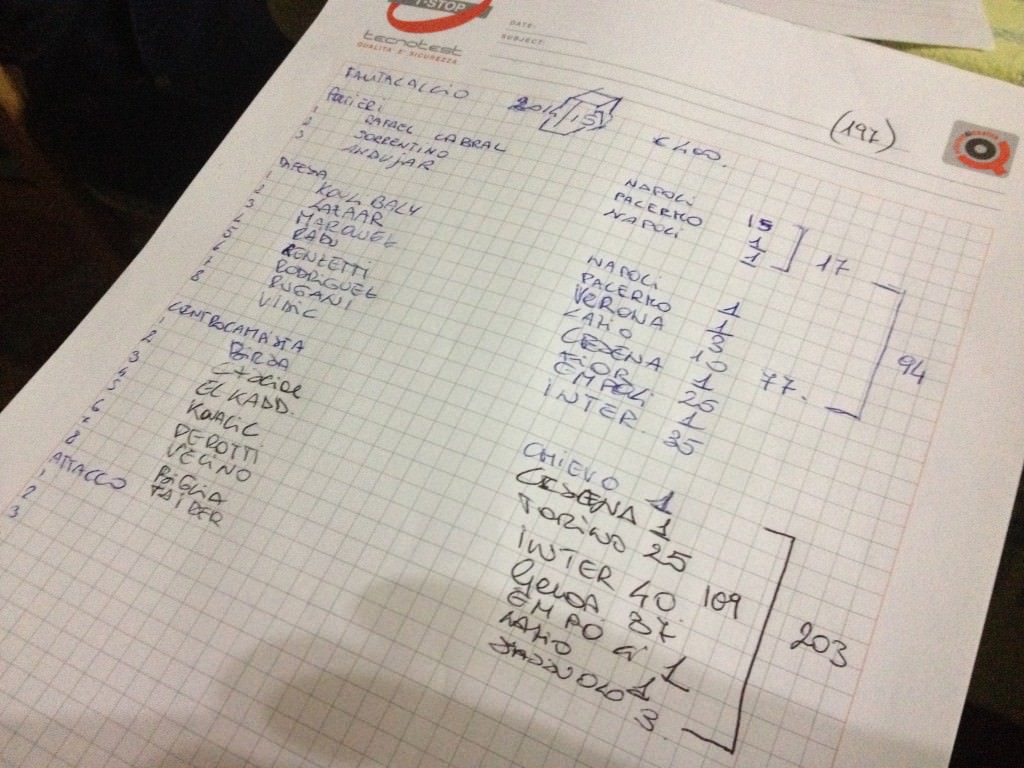 T-STOP
tecnotest
QUALITÀ E SICUREZZA
DATE:
SUBJECT:
FANTACALCIO 2014 15 € 400. (197)
PORTIERI
1 RAFAEL CABRAL NAPOLI 15
2 SORRENTINO PALERMO 1
3 ANDUJAR NAPOLI 1 17
DIFESA
1 KOULIBALY NAPOLI 1
2 LAZAAR PALERMO 1
3 MARQUEZ VERONA 3
4 RADU LAZIO 10
5 RENZETTI CESENA 1 77.
6 RODRIGUEZ FIOR. 25
7 RUGANI EMPOLI 1
8 VIDIC INTER 35
94
CENTROCAMPISTA
1 BIRSA CHIEVO 1
2 CESENA 1
3 EL KADD. TORINO 25
4 KOVACIC INTER 40. 109
5 PEROTTI GENOA 37
6 VECINO EMPOLI 1
7 BIGLIA LAZIO 1
8 TAIDER SASSUOLO 3.
203
ATTACCO
1
2
3